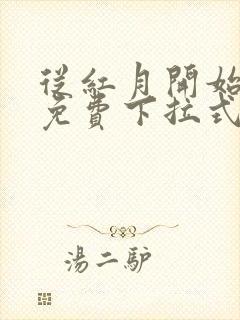 從紅月開始
免費下拉式
湯二驴